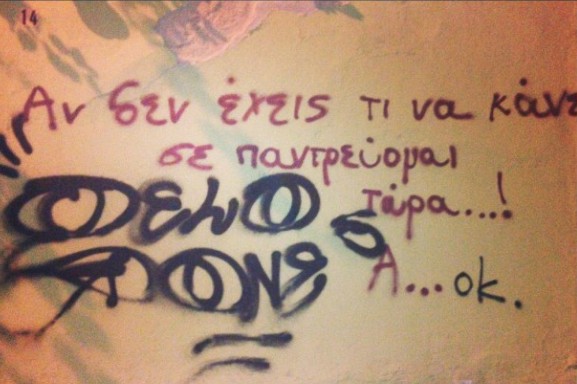 14
Αν δεν έχεις τι να κάνε
σε παντρεύομαι
τώρα...!
Α... οκ.